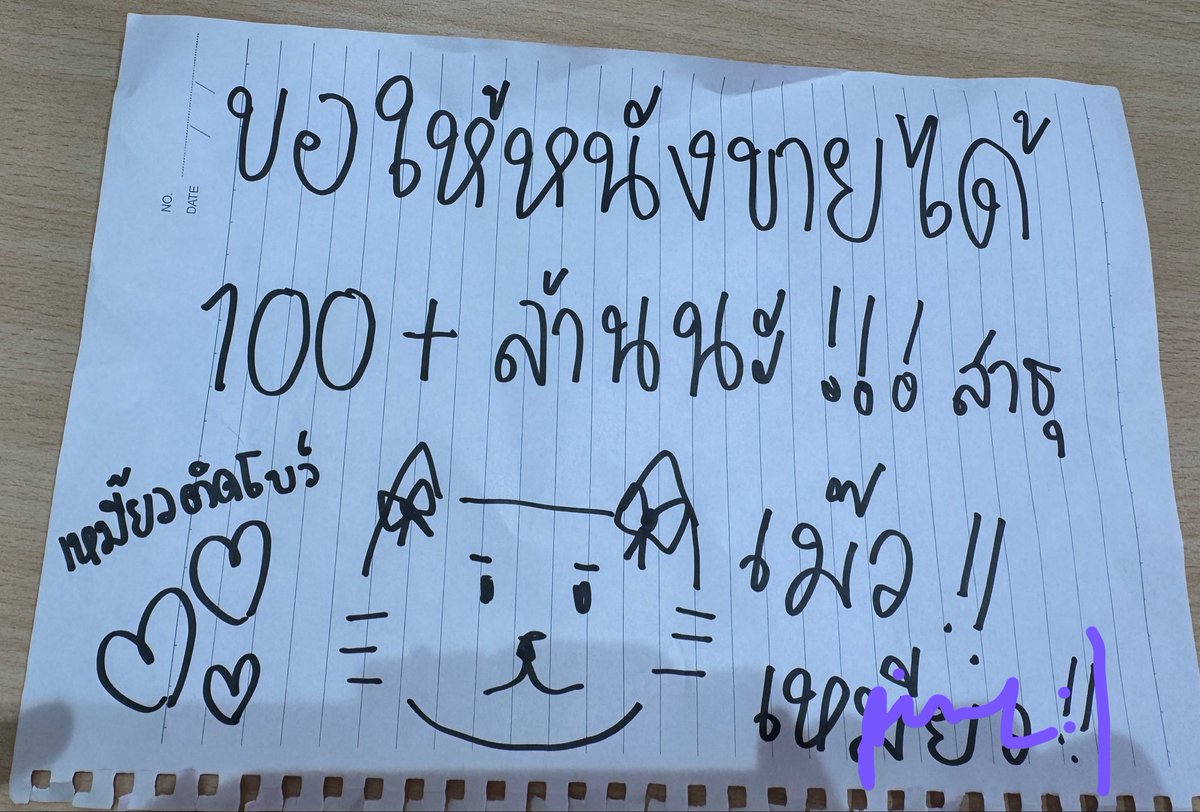 NO.
DATE
ขอให้หนังขายได้
100+ ล้านนะ!!! สาธุ
เหมี๊ยวติดโบว์
เม๊ว!!
เหมียว!!